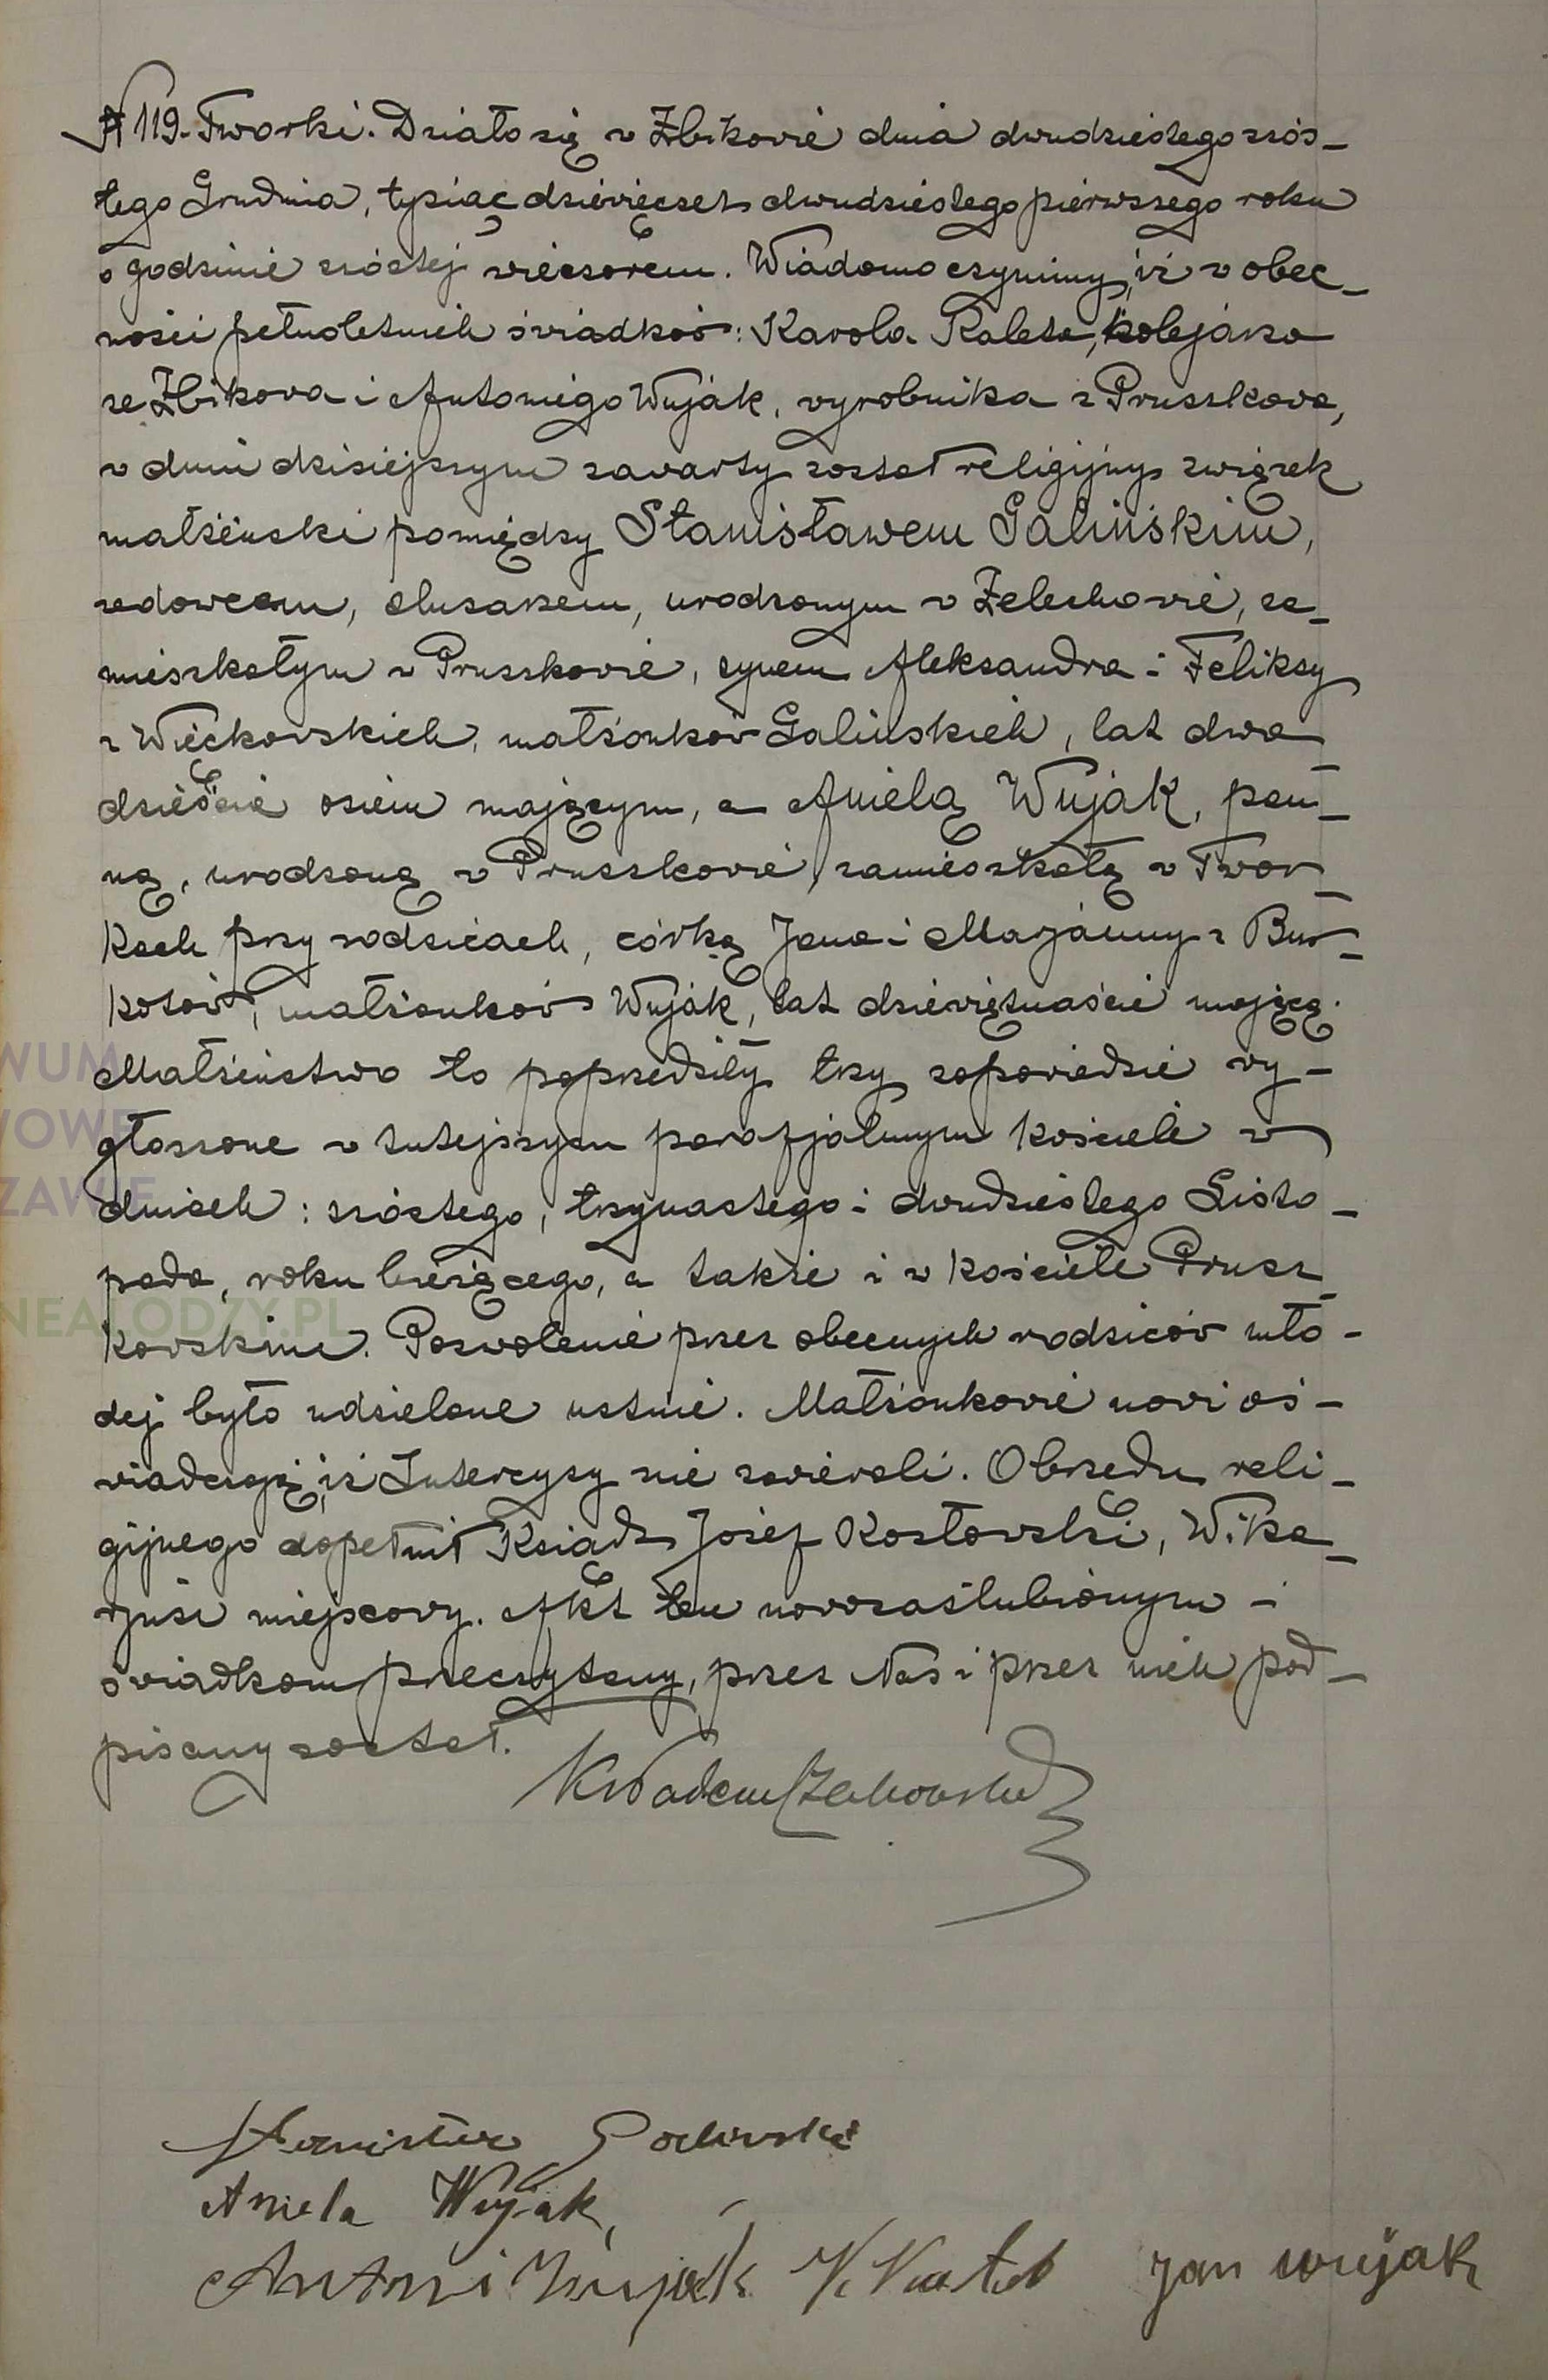 № 119. Tworki. Działo się w Żbikowie dnia dwudziestego szós-
tego Grudnia, tysiąc dziewięćset dwudziestego pierwszego roku
o godzinie szóstej wieczorem. Wiadomo czynimy, iż w obec-
ności pełnoletnich świadków: Karola Kaleta, kolejarza
ze Żbikowa i Antoniego Wujak, wyrobnika z Pruszkowa,
w dniu dzisiejszym zawarty został religijny związek
małżeński pomiędzy Stanisławem Galińskim,
wdowcem, ślusarzem, urodzonym w Żelechowie, za-
mieszkałym w Pruszkowie, synem Aleksandra i Feliksy
z Więckowskich, małżonków Galińskich, lat dwa-
dzieścia osiem mającym, a Anielą Wujak, pan-
ną, urodzoną w Pruszkowie, zamieszkałą w Twor-
kach przy rodzicach, córką Jana i Marjanny z Bur-
kotów, małżonków Wujak, lat dziewiętnaście mającą.
Małżeństwo to poprzedziły trzy zapowiedzie wy-
głoszone w tutejszym parafjalnym kościele w
dniach: szóstego, trzynastego i dwudziestego Listo-
pada, roku bieżącego, a także i w kościele Prusz-
kowskim. Pozwolenie przez obecnych rodziców mło-
dej było udzielone ustnie. Małżonkowie nowi oś-
wiadczają, iż Intercyzy nie zawierali. Obrzędu reli-
gijnego dopełnił Ksiądz Józef Kozłowski, Wika-
rjusz miejscowy. Akt ten nowozaślubionym i
świadkom przeczytany, przez Nas i przez nich pod-
pisany został.
Stanisław Galiński
Aniela Wujak,
Antoni Wujak K. Jan Wujak
WUM
WOWE
ZAWIE
NEALODZY.PL